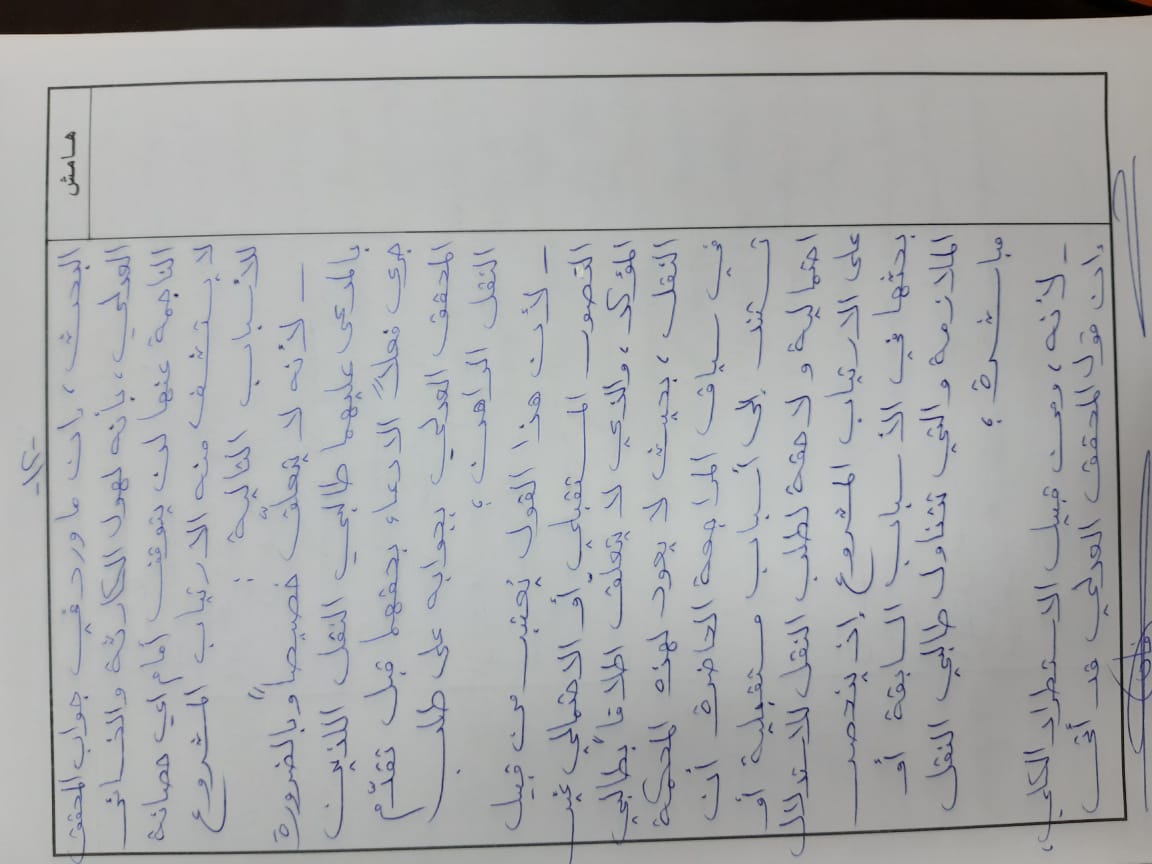 -١٢-
هامش
البحث، بان ما ورد في جواب المحقق
العدلي، بانه لهول الكارثة والخسائر
الناجمة عنها لن يتوقف أمام اي حصانة
لا يستشف منه الارتياب المشروع
للاسباب التالية:
– لانه لا يتعلق خصيصاً وبالضرورة
بالمدعى عليهما طالبي النقل اللذين
جرى فعلاً الادعاء بحقهما قبل تقدّم
المحقق العدلي بجوابه على طلب
النقل الراهن؛
– لأن هذا القول يُعتبر من قبيل
التصور المستقبلي أو الاحتمالي غير
المؤكد، والذي لا يتعلق اطلاقاً بطالبي
النقل، بحيث لا يعود لهذه المحكمة
في سياق المراجعة الحاضرة أن
تستند إلى أسباب مستقبلية أو
احتمالية ولاحقة لطلب النقل للاستدلال
على الارتياب المشروع إذ ينحصر
بحثها في الاسباب السابقة أو
الملازمة والتي تتناول طالبي النقل
مباشرة؛
– لانه، ومن قبيل الاستطراد الكلي،
بان قول المحقق العدلي قد أتى